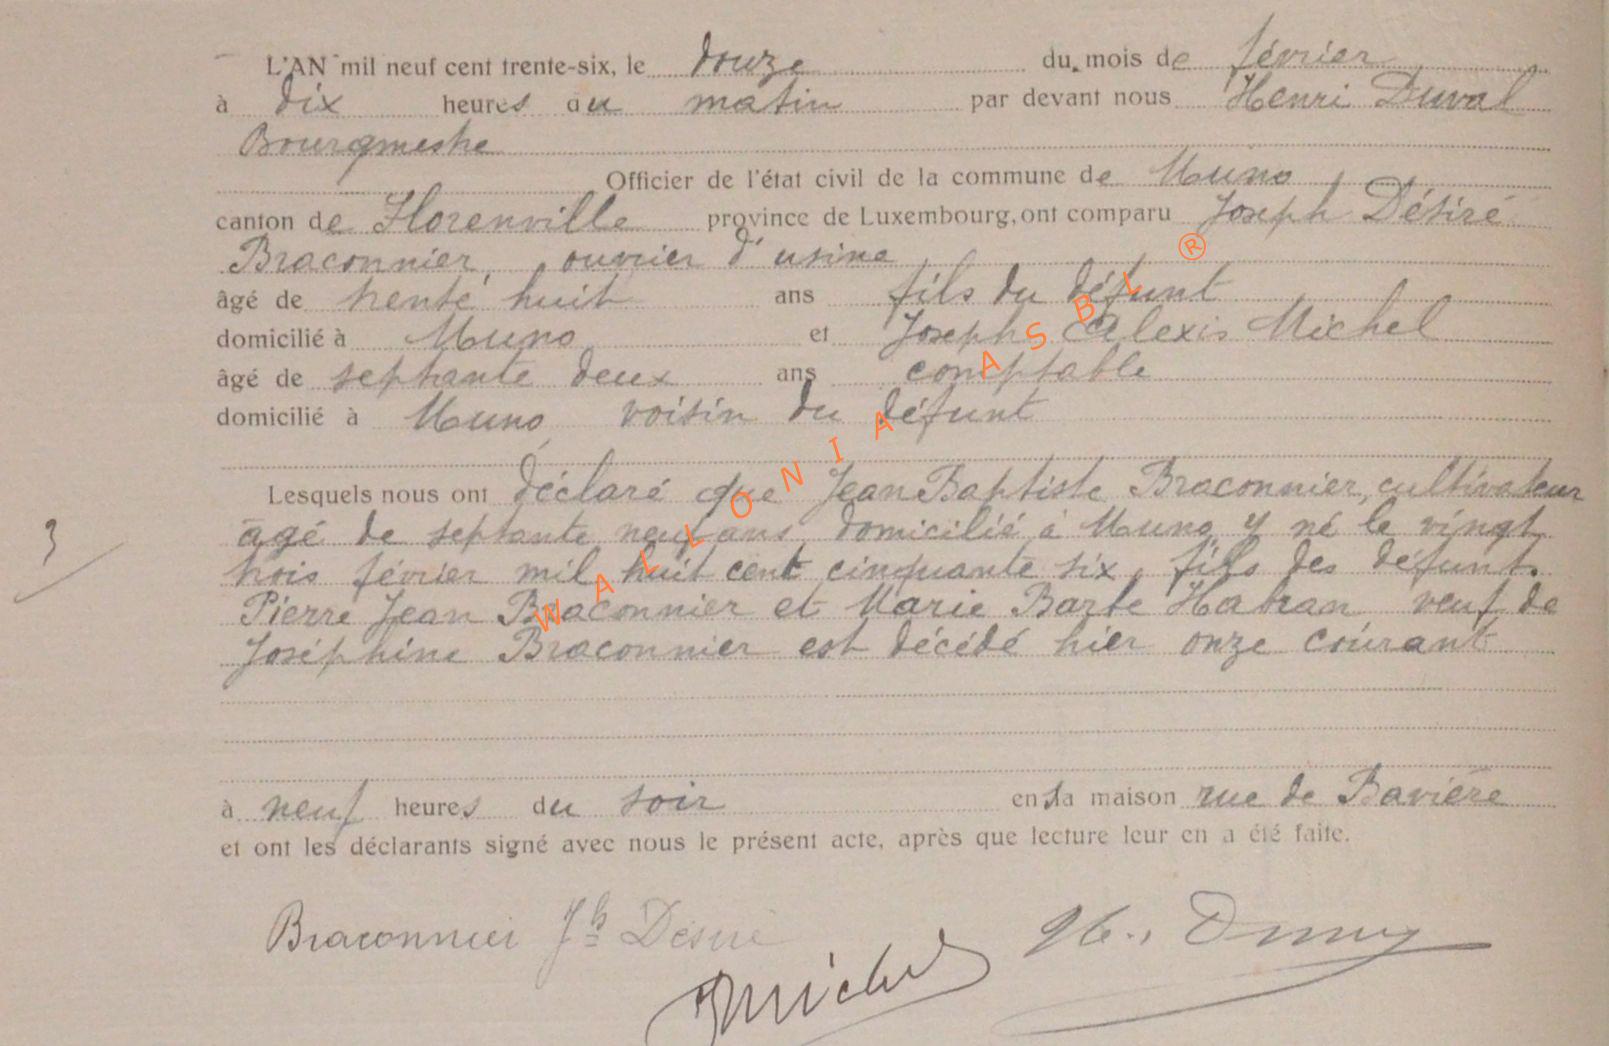 L'AN mil neuf cent trente-six, le douze du mois de février
à dix heures du matin par devant nous Henri Duval
Bourgmestre
Officier de l'état civil de la commune de Muno
canton de Florenville province de Luxembourg, ont comparu Joseph Désiré
Braconnier, ouvrier d'usine
âgé de trente huit ans fils du défunt
domicilié à Muno et Joseph Alexis Michel
âgé de septante deux ans comptable
domicilié à Muno, voisin du défunt
Lesquels nous ont déclaré que Jean Baptiste Braconnier, cultivateur
âgé de septante neuf ans, domicilié à Muno, y né le vingt
trois février mil huit cent cinquante six, fils des défunts
Pierre Jean Braconnier et Marie Barbe Habran veuf de
Joséphine Braconnier est décédé hier onze courant
3
à neuf heures du soir en sa maison rue de Bavière
et ont les déclarants signé avec nous le présent acte, après que lecture leur en a été faite.
Braconnier Jh Désiré
H. Duval
JMichel
WALLONIA ASBL ®